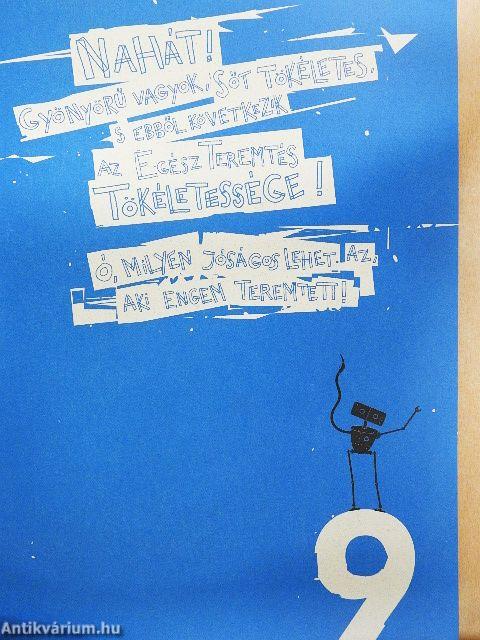 NAHÁT!
GYÖNYÖRŰ VAGYOK, SŐT TÖKÉLETES,
S EBBŐL KÖVETKEZIK
AZ EGÉSZ TEREMTÉS
TÖKÉLETESSÉGE!
Ó, MILYEN JÓSÁGOS LEHET AZ,
AKI ENGEM TEREMTETT!
9
Antikvárium.hu